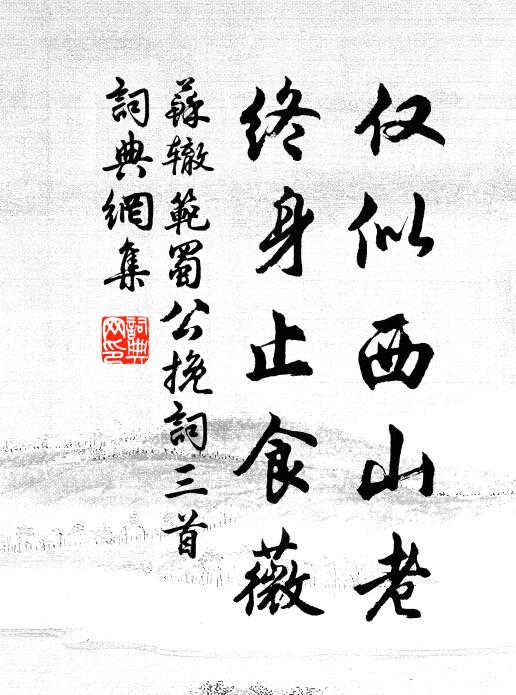 仅似西山老
终身止食薇
蘇辙範蜀公挽詞三首
詞典網集
詞典网印